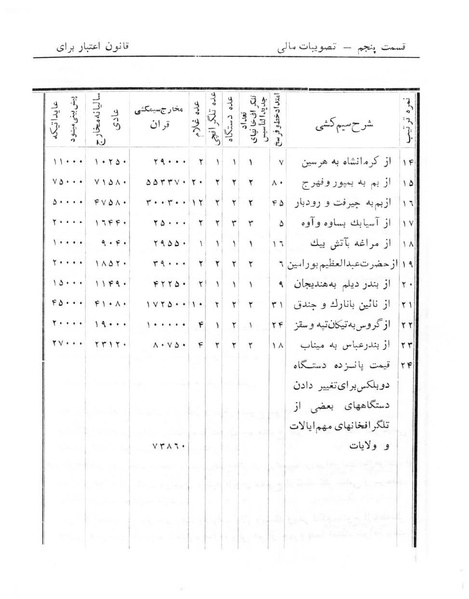 قسمت پنجم – تصویبات مالی قانون اعتبار برای
نمره ترتیب
شرح سیم کشی
امتداد خط و فرسخ
تعداد تلگرافخانهای جدیدالتأسیس
عده دستگاه
عده تلگرافچی
عده غلام
مخارج سیمکشی قران
سالیانه مخارج عادی
عایداتیکه پیش بینی میشود
۱۴ از کرمانشاه به هرسین ۷ ۱ ۱ ۱ ۲ ۲۹۰۰۰ ۱۰۲۵۰ ۱۱۰۰۰
۱۵ از بم به بمپور و فهرج ۸۰ ۲ ۲ ۲ ۲۰ ۵۵۳۳۷۰ ۷۱۵۸۰ ۷۵۰۰۰
۱۶ ازبم به جیرفت و رودبار ۴۵ ۲ ۲ ۲ ۱۲ ۳۰۰۳۰۰ ۴۷۵۸۰ ۵۰۰۰۰
۱۷ از آسیابك بساوه و آوه ۵ ۳ ۲ ۲ ۲ ۲۵۰۰۰ ۱۶۴۴۰ ۲۰۰۰۰
۱۸ از مراغه بآتش بیك ۱۶ ۱ ۱ ۱ ۱ ۲۹۵۵۰ ۹۰۴۰ ۱۰۰۰۰
۱۹ از حضرت عبدالعظیم بورامین ۶ ۲ ۲ ۲ ۲ ۳۹۰۰۰ ۱۸۵۲۰ ۲۰۰۰۰
۲۰ از بندر دیلم به هندیجان ۹ ۱ ۱ ۱ ۲ ۴۲۲۵۰ ۱۱۴۹۰ ۱۵۰۰۰
۲۱ از نائین بانارك و جندق ۳۱ ۲ ۲ ۲ ۱۰ ۱۷۲۵۰۰ ۴۱۰۸۰ ۴۵۰۰۰
۲۲ از گروس به تیکان تپه و سقز ۲۴ ۱ ۲ ۲ ۴ ۱۰۰۰۰۰ ۱۹۰۰۰ ۲۰۰۰۰
۲۳ از بندرعباس به میناب ۱۸ ۱ ۲ ۲ ۴ ۸۰۷۵۰ ۲۳۱۲۰ ۲۷۰۰۰
۲۴ قیمت پانزده دستگاه
دوبلکس برای تغییر دادن
دستگاههای بعضی از
تلگرافخانهای مهم ایالات
و ولایات ۷۳۸۶۰